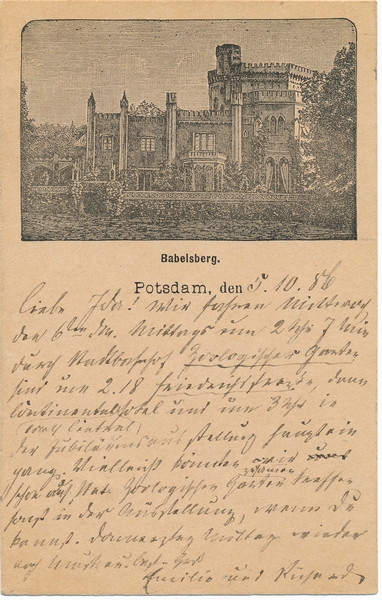 Babelsberg.
Potsdam, den 5. 10. 86
Liebe Ida! Wir fahren Mittwoch
den 6ten d.M. Mittags um 2 Uhr 7 Min
durch Stadtbahnhof Zoologischer Garten
sind um 2.18 Friedrichstraße, dann
Continentalhotel und um 3 Uhr in
(   Central)
der Jubiläumsausstellung Haupteingang
gang. Vielleicht können wir uns
schon auf Stat. Zoologischen Garten treffen
zusammen
sonst in der Ausstellung, wenn Du
kannst. Donnerstag Mittag wieder
nach
Emilie und Richard